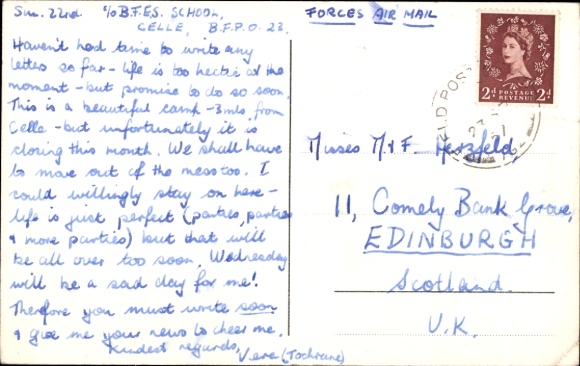 Sun. 22nd c/o B.F.E.S. SCHOOL,
CELLE, B.F.P.O. 23.
Haven't had time to write any
letters so far - life is too hectic at the
moment - but promise to do so soon.
This is a beautiful camp - 3mls. from
Celle - but unfortunately it is
closing this month. We shall have
to move out of the mess too. I
could willingly stay on here -
life is just perfect (parties, parties
& more parties) but that will
be all over too soon. Wednesday
will be a sad day for me!
Therefore you must write soon
& give me your news to cheer me.
Kindest regards,
Vera (Tochrane)
FORCES AIR MAIL
2d POSTAGE REVENUE 2d
FIELD POST
Misses M & F. Herzfeld,
11, Comely Bank Grove,
EDINBURGH
Scotland.
U.K.